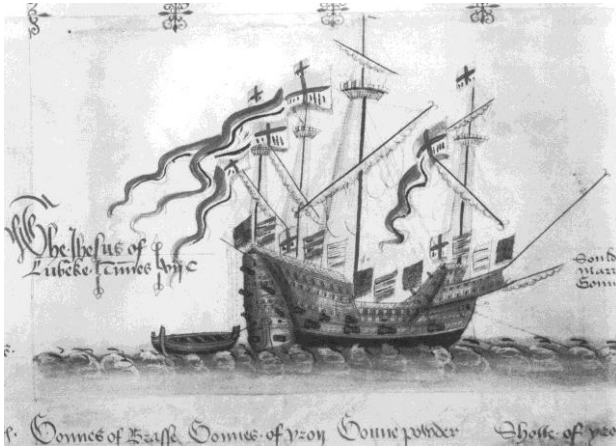 The Jhesus of
Lubeke Tunnes vij C
Gonnes of Brasse Gonnes of yron Gonne powder Shotte of yro